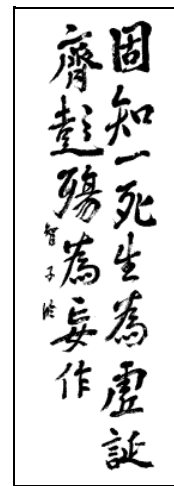 固知一死生為虛誕
齊彭殤為妄作
智子